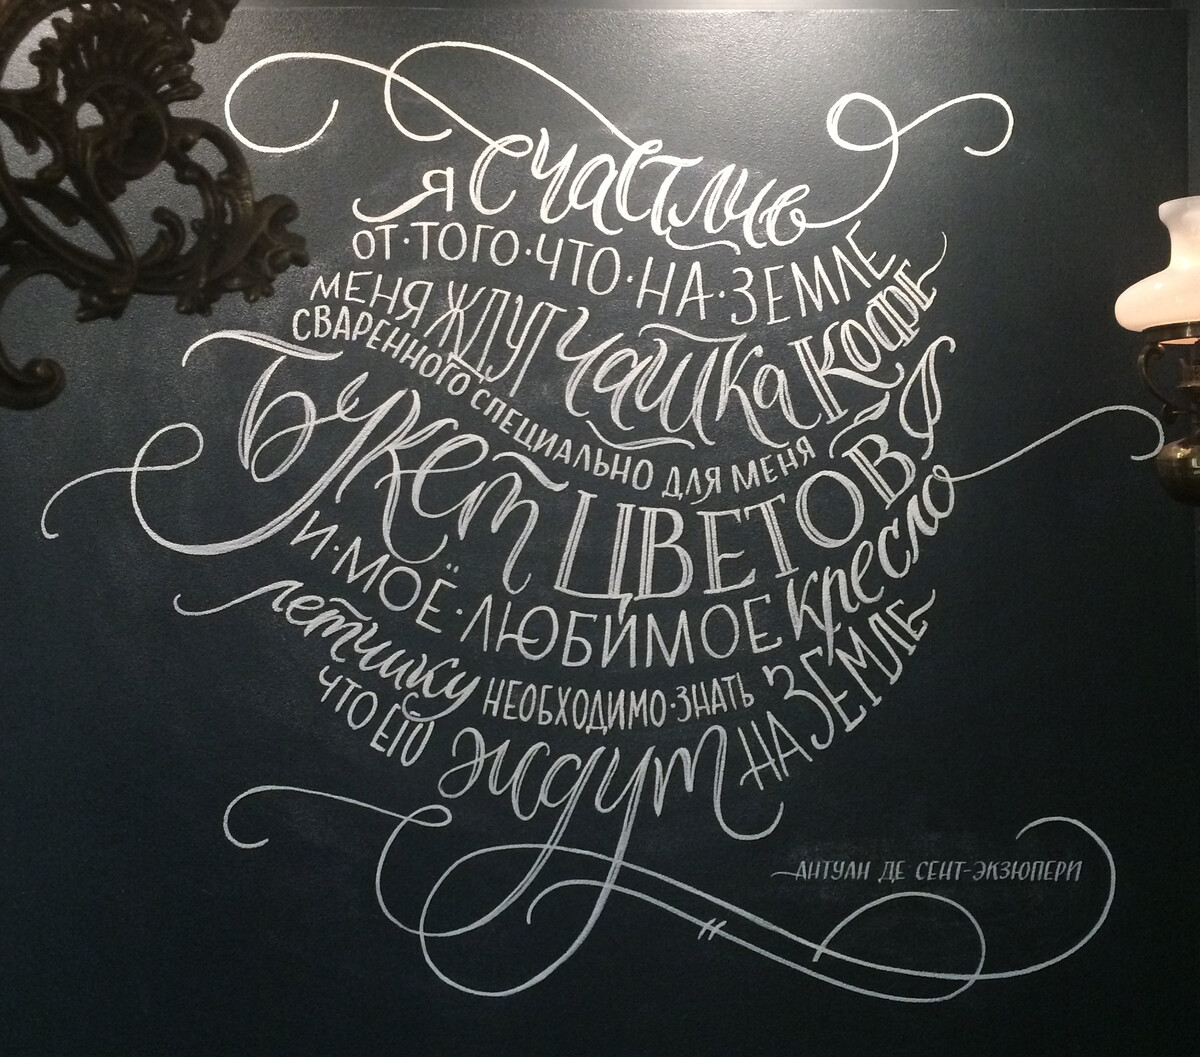 я счастлив
ОТ·ТОГО·ЧТО·НА·ЗЕМЛЕ
МЕНЯ ЖДУТ чашка КОФЕ
СВАРЕННОГО СПЕЦИАЛЬНО ДЛЯ МЕНЯ
Букет ЦВЕТОВ
И·МОЁ·ЛЮБИМОЕ кресло
летчику НЕОБХОДИМО·ЗНАТЬ
ЧТО ЕГО ждут НА ЗЕМЛЕ
АНТУАН ДЕ СЕНТ-ЭКЗЮПЕРИ